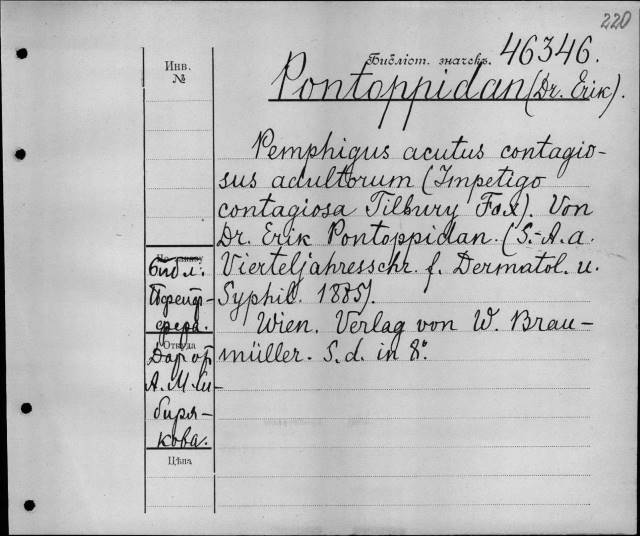 220
Инв.
№
Библіот. значекъ. 46346.
Pontoppidan (Dr. Erik).
Pemphigus acutus contagio-
sus adultorum (Impetigo
contagiosa Tilbury Fox). Von
Dr. Erik Pontoppidan. (S.-A. a.
Vierteljahresschr. f. Dermatol. u.
Syphil. 1885).
Wien. Verlag von W. Brau-
müller. S. d. in 8°.
Библ.
Откуда
Дар
А. М. Си-
биря-
кова.
Цѣна